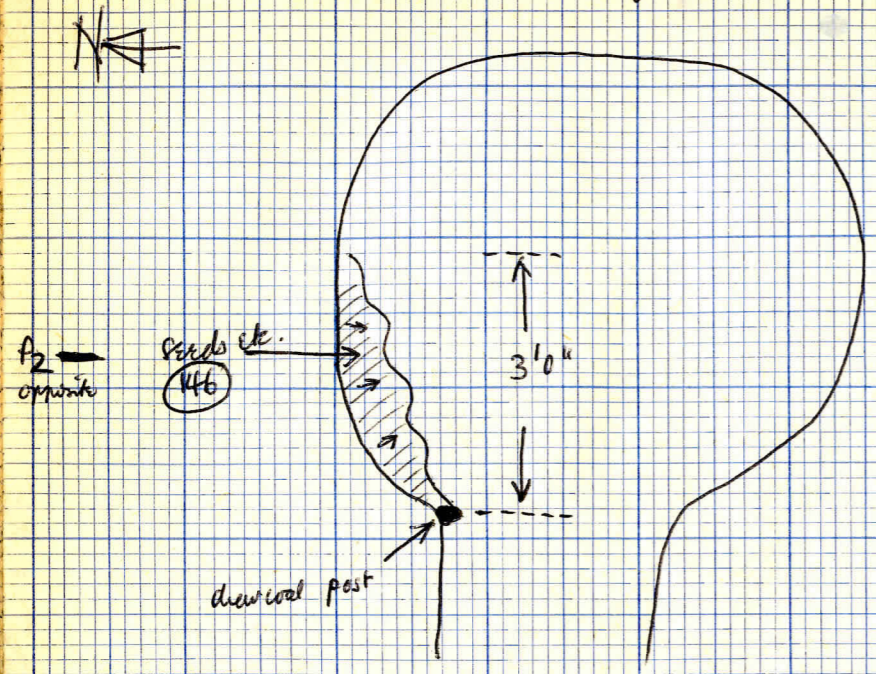 N
P2
opposite
seeds etc.
146
3'0"
charcoal post